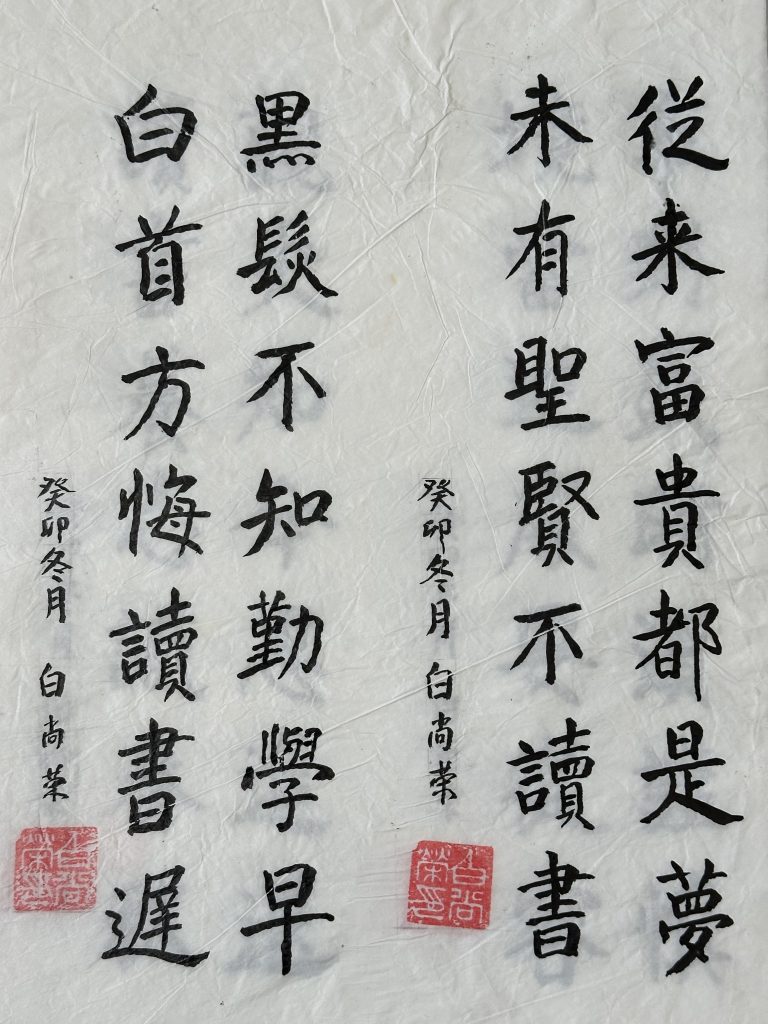 従来富貴都是夢
未有聖賢不讀書
癸卯冬月 白尚荣
白尚荣印
黑髮不知勤學早
白首方悔讀書遲
癸卯冬月 白尚荣
白尚荣印